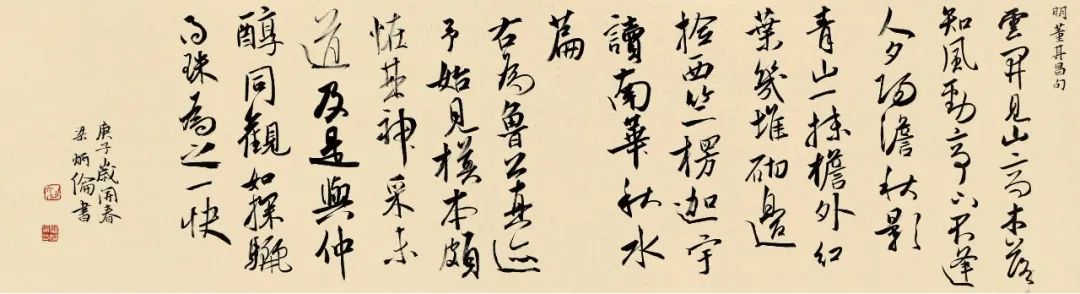 明董其昌句
雲開見山高木落
知風勁亭下不逢
人夕陽澹秋影
青山一抹檐外紅
葉幾堆砌邊
撿西竺楞迦字
讀南華秋水
篇
右為魯公真迹
予始見模本頗
恠其神采未
道及是與仲
醇同觀如探驪
得珠為之一快
庚子歲開春
梁炳倫書